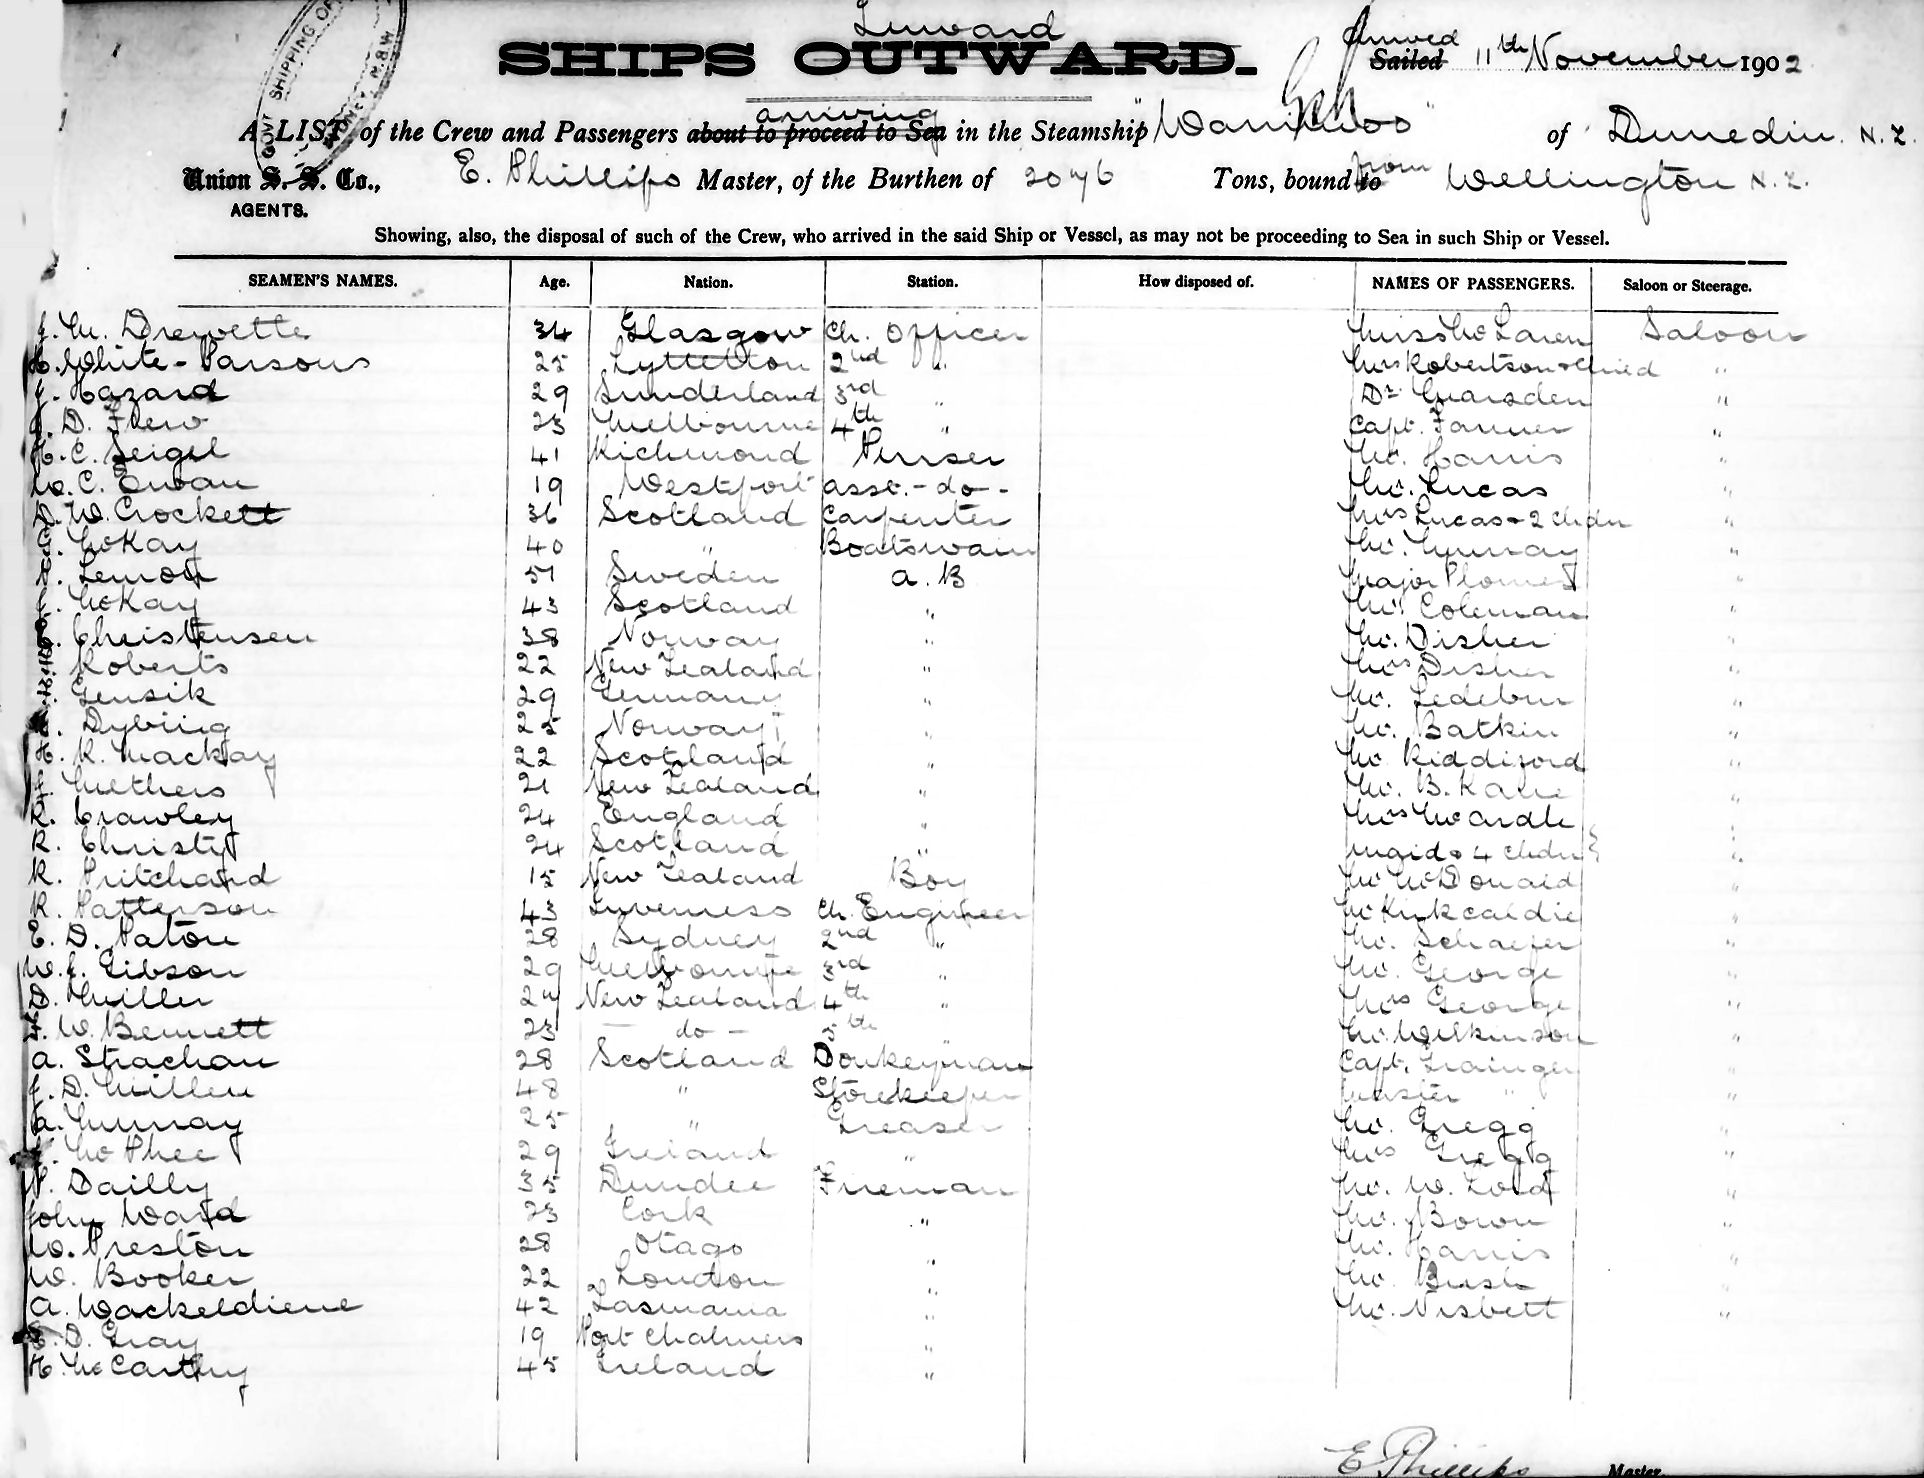 Inward
SHIPS OUTWARD.
Arrived
Sailed 11th November 1902
GOVT SHIPPING OF
SYDNEY, N.S.W.
arriving
A LIST of the Crew and Passengers about to proceed to Sea in the Steamship "Warrimoo" of Dunedin. N.Z.
from
Union S. S. Co., E. Phillips Master, of the Burthen of 2076 Tons, bound to Wellington N.Z.
AGENTS.
Showing, also, the disposal of such of the Crew, who arrived in the said Ship or Vessel, as may not be proceeding to Sea in such Ship or Vessel.
SEAMEN'S NAMES. Age. Nation. Station. How disposed of. NAMES OF PASSENGERS. Saloon or Steerage.
J. M. Drewette 34 Glasgow Ch. Officer Miss McLaren Saloon
White-Parsons 25 Lyttelton 2nd " Mrs Robertson "
J. Hazard 29 Sunderland 3rd " Dr Marsden "
D. Frew 23 Melbourne 4th " Capt. Farmer "
H. C. Seigel 41 Richmond Purser Mr. Harris "
W. C. Ewan 19 Westport asst. - do - Mr. Lucas
W. Crockett 36 Scotland Carpenter Mrs Lucas & 2 chdn "
McKay 40 " Boatswain Mr. Murray "
Lemon 51 Sweden A. B Major "
McKay 43 Scotland " Mr. Coleman "
Christensen 38 Norway " Mr. Disher "
Roberts 22 New Zealand " Mrs Disher "
Gensik 29 Germany " Mr. Ledebur "
Dybing 25 Norway " Mr. Batkin "
H. R. Mackay 22 Scotland " Mr. Riddiford "
Methers 21 New Zealand " Mr. B. "
R. Crawley 24 England " Mrs McArdle "
R. Christy 24 Scotland " maid & 4 chdn "
R. Pritchard 15 New Zealand Boy Mr McDonald "
R. Patterson 43 Inverness Ch. Engineer Mr Kirkcaldie "
E. D. Paton 28 Sydney 2nd " Mr. Schaefer "
W. J. Gibson 29 Melbourne 3rd " Mr. George "
D. Miller New Zealand 4th " Mrs George "
W. Bennett 23 - do - 5th Mr. Wilkinson "
A. Strachan 28 Scotland Donkeyman Capt. Grainger "
J. D. Millen 48 " Storekeeper Master " "
A. Murray 25 " Greaser Mr. Gregg "
McPhee 29 Ireland " Mrs Gregg "
P. Dailly 35 Dundee Fireman Mr. W. Lord "
John Ward 23 Cork " Mr. Bown "
W. Preston 28 Otago " Mr. Harris "
W. Booker 22 London " Mr. Bush "
A. Wackeldiene 42 Tasmania " Mr. Nisbett "
D. Gray 19 Port Chalmers "
H. McCarthy 45 Ireland "
E Phillips Master.